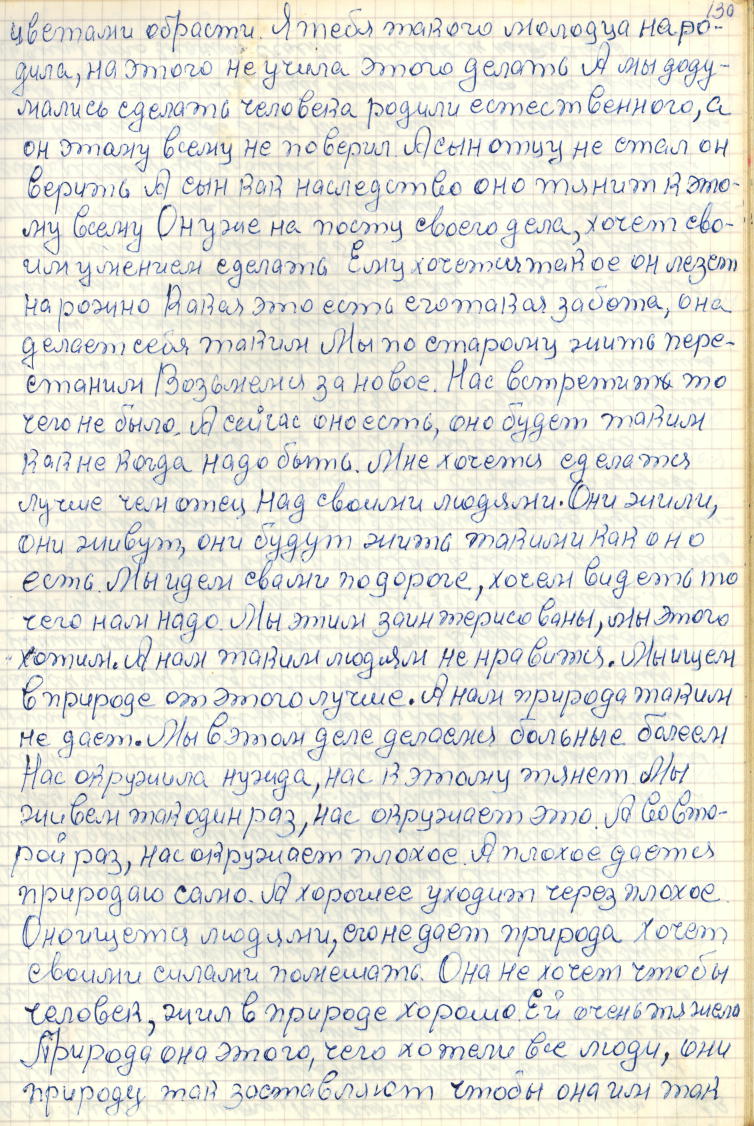 130
цветами обрасти. Я тебя такого молодца наро-
дила, на этого не учила этого делать А мы доду-
мались сделать человека родили естественного, а
он этаму всему не поверил. А сын отцу не стал он
верить А сын как наследство оно тянит к это-
му всему Он уже на посту своего дела, хочет сво-
им умением сделать Ему хочется такое он лезет
на рожно Какая это есть его такая забота, она
делает себя таким Мы по старому жить пере-
станим Возьмемся за новое. Нас встретить то
чего не было. А сейчас оно есть, оно будет таким
как не когда надо быть. Мне хочется сделатся
лучше чем отец над своими людями. Они жили,
они живут, они будут жить такими как оно
есть. Мы идем свами по дороге, хочем видеть то
чего нам надо. Мы этим заинтерисованы, мы этого
хотим. А нам таким людям не нравится. Мы ищем
в природе от этого лучше. А нам природа таким
не дает. Мы в этом деле делаемся больные болеем
Нас окружила нужда, нас к этому тянет Мы
живем так один раз, нас окружает это. А во вто-
рой раз, нас окружает плохое. А плохое дается
природаю само. А хорошее уходит через плохое.
Оно ищется людями, его не дает природа хочет
своими силами помешать. Она не хочет чтобы
человек, жил в природе хорошо. Ей очень тяжело
Природа она этого, чего хотели все люди, они
природу так заставляют чтобы она им так